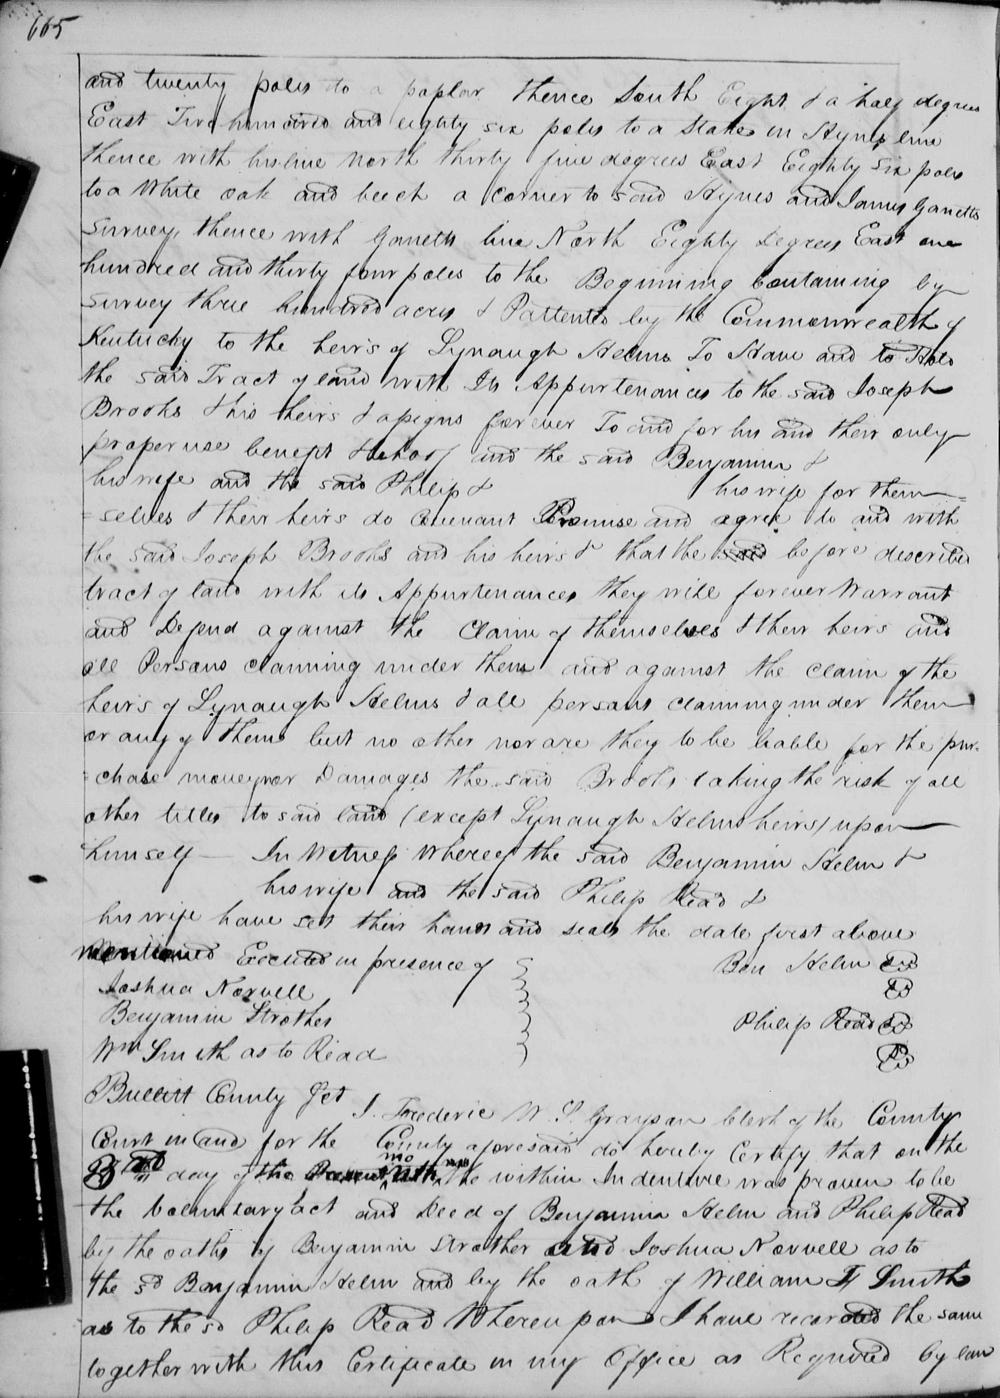 665
and twenty poles to a poplar thence South Eight & a half degrees
East Two hundred and eighty six poles to a Stake in Hynes line
thence with his line North thirty five degrees East Eighty six poles
to a White oak and beech a corner to said Hynes and James Garretts
Survey, thence with Garretts line North Eighty Degrees East one
hundred and thirty four poles to the Beginning Containing by
Survey three hundred acres & Pattented by the Commonwealth of
Kentucky to the heirs of Lynaugh Helms To Have and to Hold
the said Tract of land with Its Appurtenances to the said Joseph
Brooks & his heirs & assigns forever To and for his and their only
proper use benefit & behoof and the said Benjamin &
his wife and the said Philip & his wife for them=
=selves & their heirs do Covenant Promise and agree to and with
the said Joseph Brooks and his heirs & that the said before described
tract of land with its Appurtenances they will forever Warrant
and Defend against the Claim of themselves & their heirs and
all Persons claiming under them and against the claim of the
heirs of Lynaugh Helms & all persons claiming under them
or any of them but no other nor are they to be liable for the pur-
=chase money nor Damages the said Brooks taking the risk of all
other titles to said land (except Lynaugh Helms heirs) upon
himself — In Witness Whereof the said Benjamin Helm &
his wife and the said Philip Read &
his wife have set their hands and seals the date first above
Mentioned Executed in presence of Ben Helm
Joshua Norvell
Benjamin Strother Philip Read
Wm Smith as to Read
Bullitt County Sct
I. Frederic W. S. Grayson Clerk of the County
Court in and for the County aforesaid do hereby Certify that on the
day of the Present mo the within Indenture was proven to be
the Voluntary Act and Deed of Benjamin Helm and Philip Read
by the oaths of Benjamin Strother and Joshua Norvell as to
the sd Benjamin Helm and by the oath of William Smith
as to the sd Philip Read Whereupon I have recorded the same
together with this Certificate in my Office as Required by law